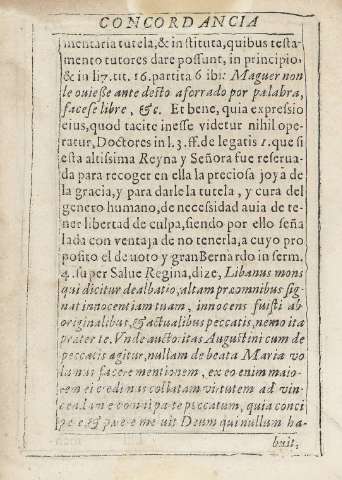 CONCORDANCIA
mentaria tutela, & in stituta, quibus testa-
mento tutores dare possunt, in principio,
& in l. 7. tit. 16. partita 6 ibi: Maguer non
le ouiesse ante decto aforrado por palabra,
facese libre, &c. Et bene, quia expressio
eius, quod tacite inesse videtur nihil ope-
ratur, Doctores in l. 3. ff. de legatis 1. que si
esta altissima Reyna y Señora fue reserua-
da para recoger en ella la preciosa joya de
la gracia, y para darle la tutela, y cura del
genero humano, de necessidad auia de te-
ner libertad de culpa, siendo por ello seña
lada con ventaja de no tenerla, a cuyo pro
posito el deuoto y gran Bernardo in serm.
4. super Salue Regina, dize, Libanus mons
qui dicitur dealbatio, altam præ omnibus sig-
nat innocentiam tuam, innocens fuisti ab
originalibus, & actualibus peccatis, nemo ita
præter te. Vnde auctoritas Augustini cum de
peccatis agitur, nullam de beata Maria vo
lamus facere mentionem, ex eo enim maio-
rem ei credimus collatam virtutem ad vin-
cendum peccatum, quia conci
pere & parere meruit Deum qui nullum ha-
buit,